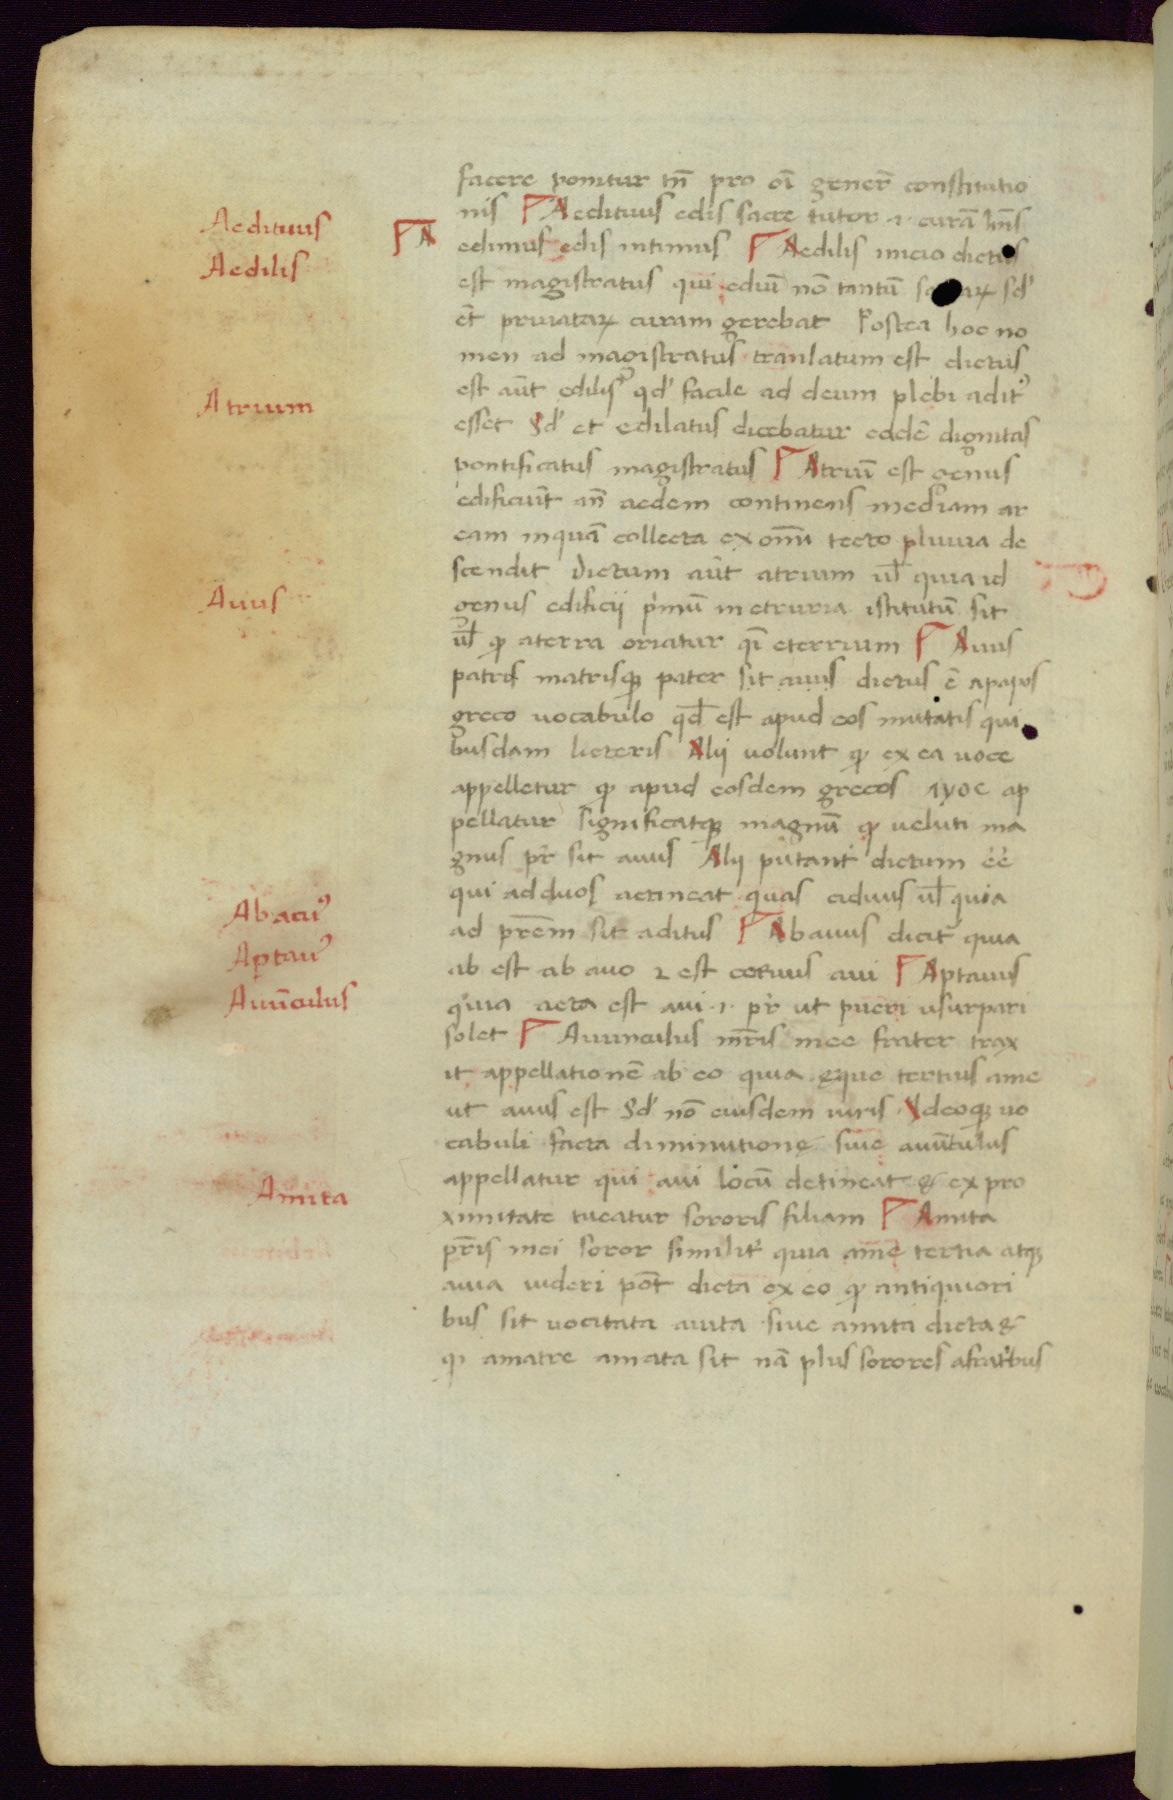 facere ponitur tn̄ pro oī gener̄ constitutio
Aedituus
nis Aedituus edis sacre tutor .i. curā hn̄s
A edimus edis intimus Aedilis inicio dictus
Aedilis
est magistratus qui ediū nō tantū sacraꝝ sd'
et̄ priuataꝝ curam gerebat Postea hoc no
men ad magistratus tranlatum est dictus
est aūt edilis qd' facile ad deum plebi adit᾽
Atrium
esset Sd' et edilatus dicebatur eadē dignitas
pontificatus magistratus Atriū est genus
edificiūt an̄ aedem continens mediam ar
eam inquā collecta ex om̄i tecto pluuia de
scendit Dictum aūt atrium ul̄ quia id
Auus
genus edificij pͥmū in etruria istitutū sit
ul̄ ꝙ aterra oriatur qͣī eterrium Auus
patris matrisqꝫ pater sit auus dictus ē apapos
greco uocabulo qd̄ est apud eos mutatis qui
busdam licteris Alij uolunt ꝙ ex ea uoce
appelletur ꝙ apud eosdem grecos ap
pellatur significatqꝫ magnū ꝙ ueluti ma
gnus pr̄ sit auus Alij putant dictum ēē
qui adduos actineat quas aduus ul̄ quia
Abacuꝰ
ad prēm sit aditus Abauus dicit᾽ quia
Aptauꝰ
ab est ab auo & est coruus aui Aptauus
Auūculus
quia acta est aui .i. pr̄ ut pueri usurpari
solet Auunculus mr̄is mee frater trax
it appellationē ab eo quia eque tertius ame
ut auus est Sd' nō eiusdem iuris Ideoqꝫ uo
cabuli facta diminutione siue auūculus
appellatur qui aui locū detineat & ex pro
Amita
ximitate tueatur sororis filiam Amita
pr̄is mei soror similit᾽ quia ame tertia atqꝫ
auia uideri pōt dicta ex eo ꝙ antiquiori
bus sit uocitata auita siue amita dicta &
ꝙ amatre amata sit nā plus sorores afratribus